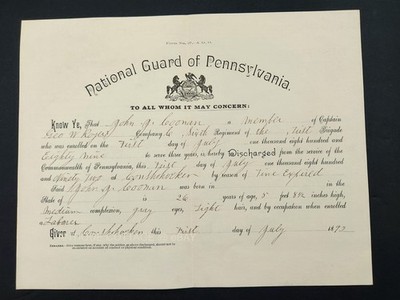 National Guard of Pennsylvania.
TO ALL WHOM IT MAY CONCERN:
Know Ye, That John J. a Member of Captain
Geo W Company C Sixth Regiment of the First Brigade
who was enrolled on the First day of July one thousand eight hundred and
Eighty Nine to serve three years, is hereby Discharged from the service of the
Commonwealth of Pennsylvania, this First day of July one thousand eight hundred
and Ninety Two at Conshohocken by reason of Time Expired
Said John J. was born in in the
State of is 26 years of age, 5 feet 8½ inches high,
Medium complexion, gray eyes, light hair, and by occupation when enrolled
a Laborer
Given at Conshohocken this First day of July 1892